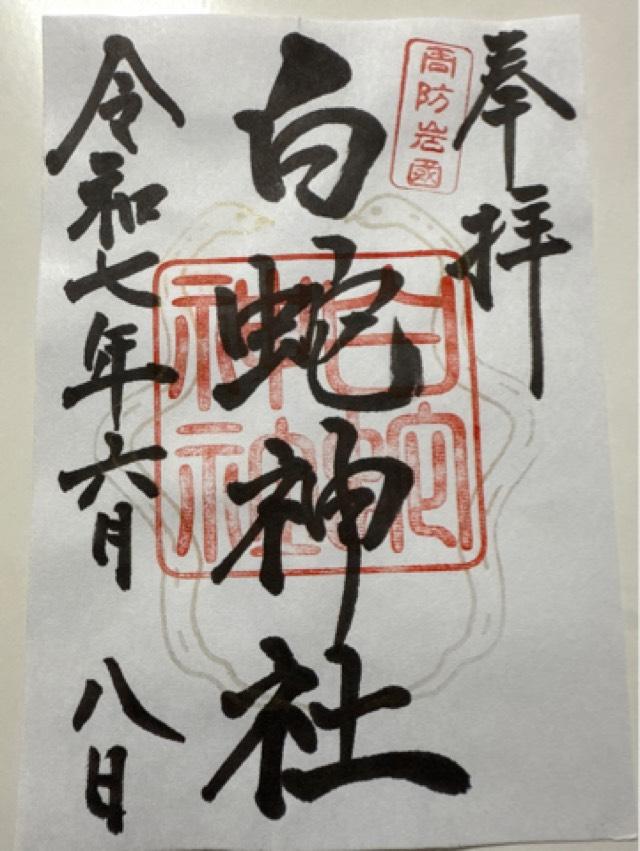 奉拝
周防岩國
白蛇神社
白蛇
神社
令和七年六月八日